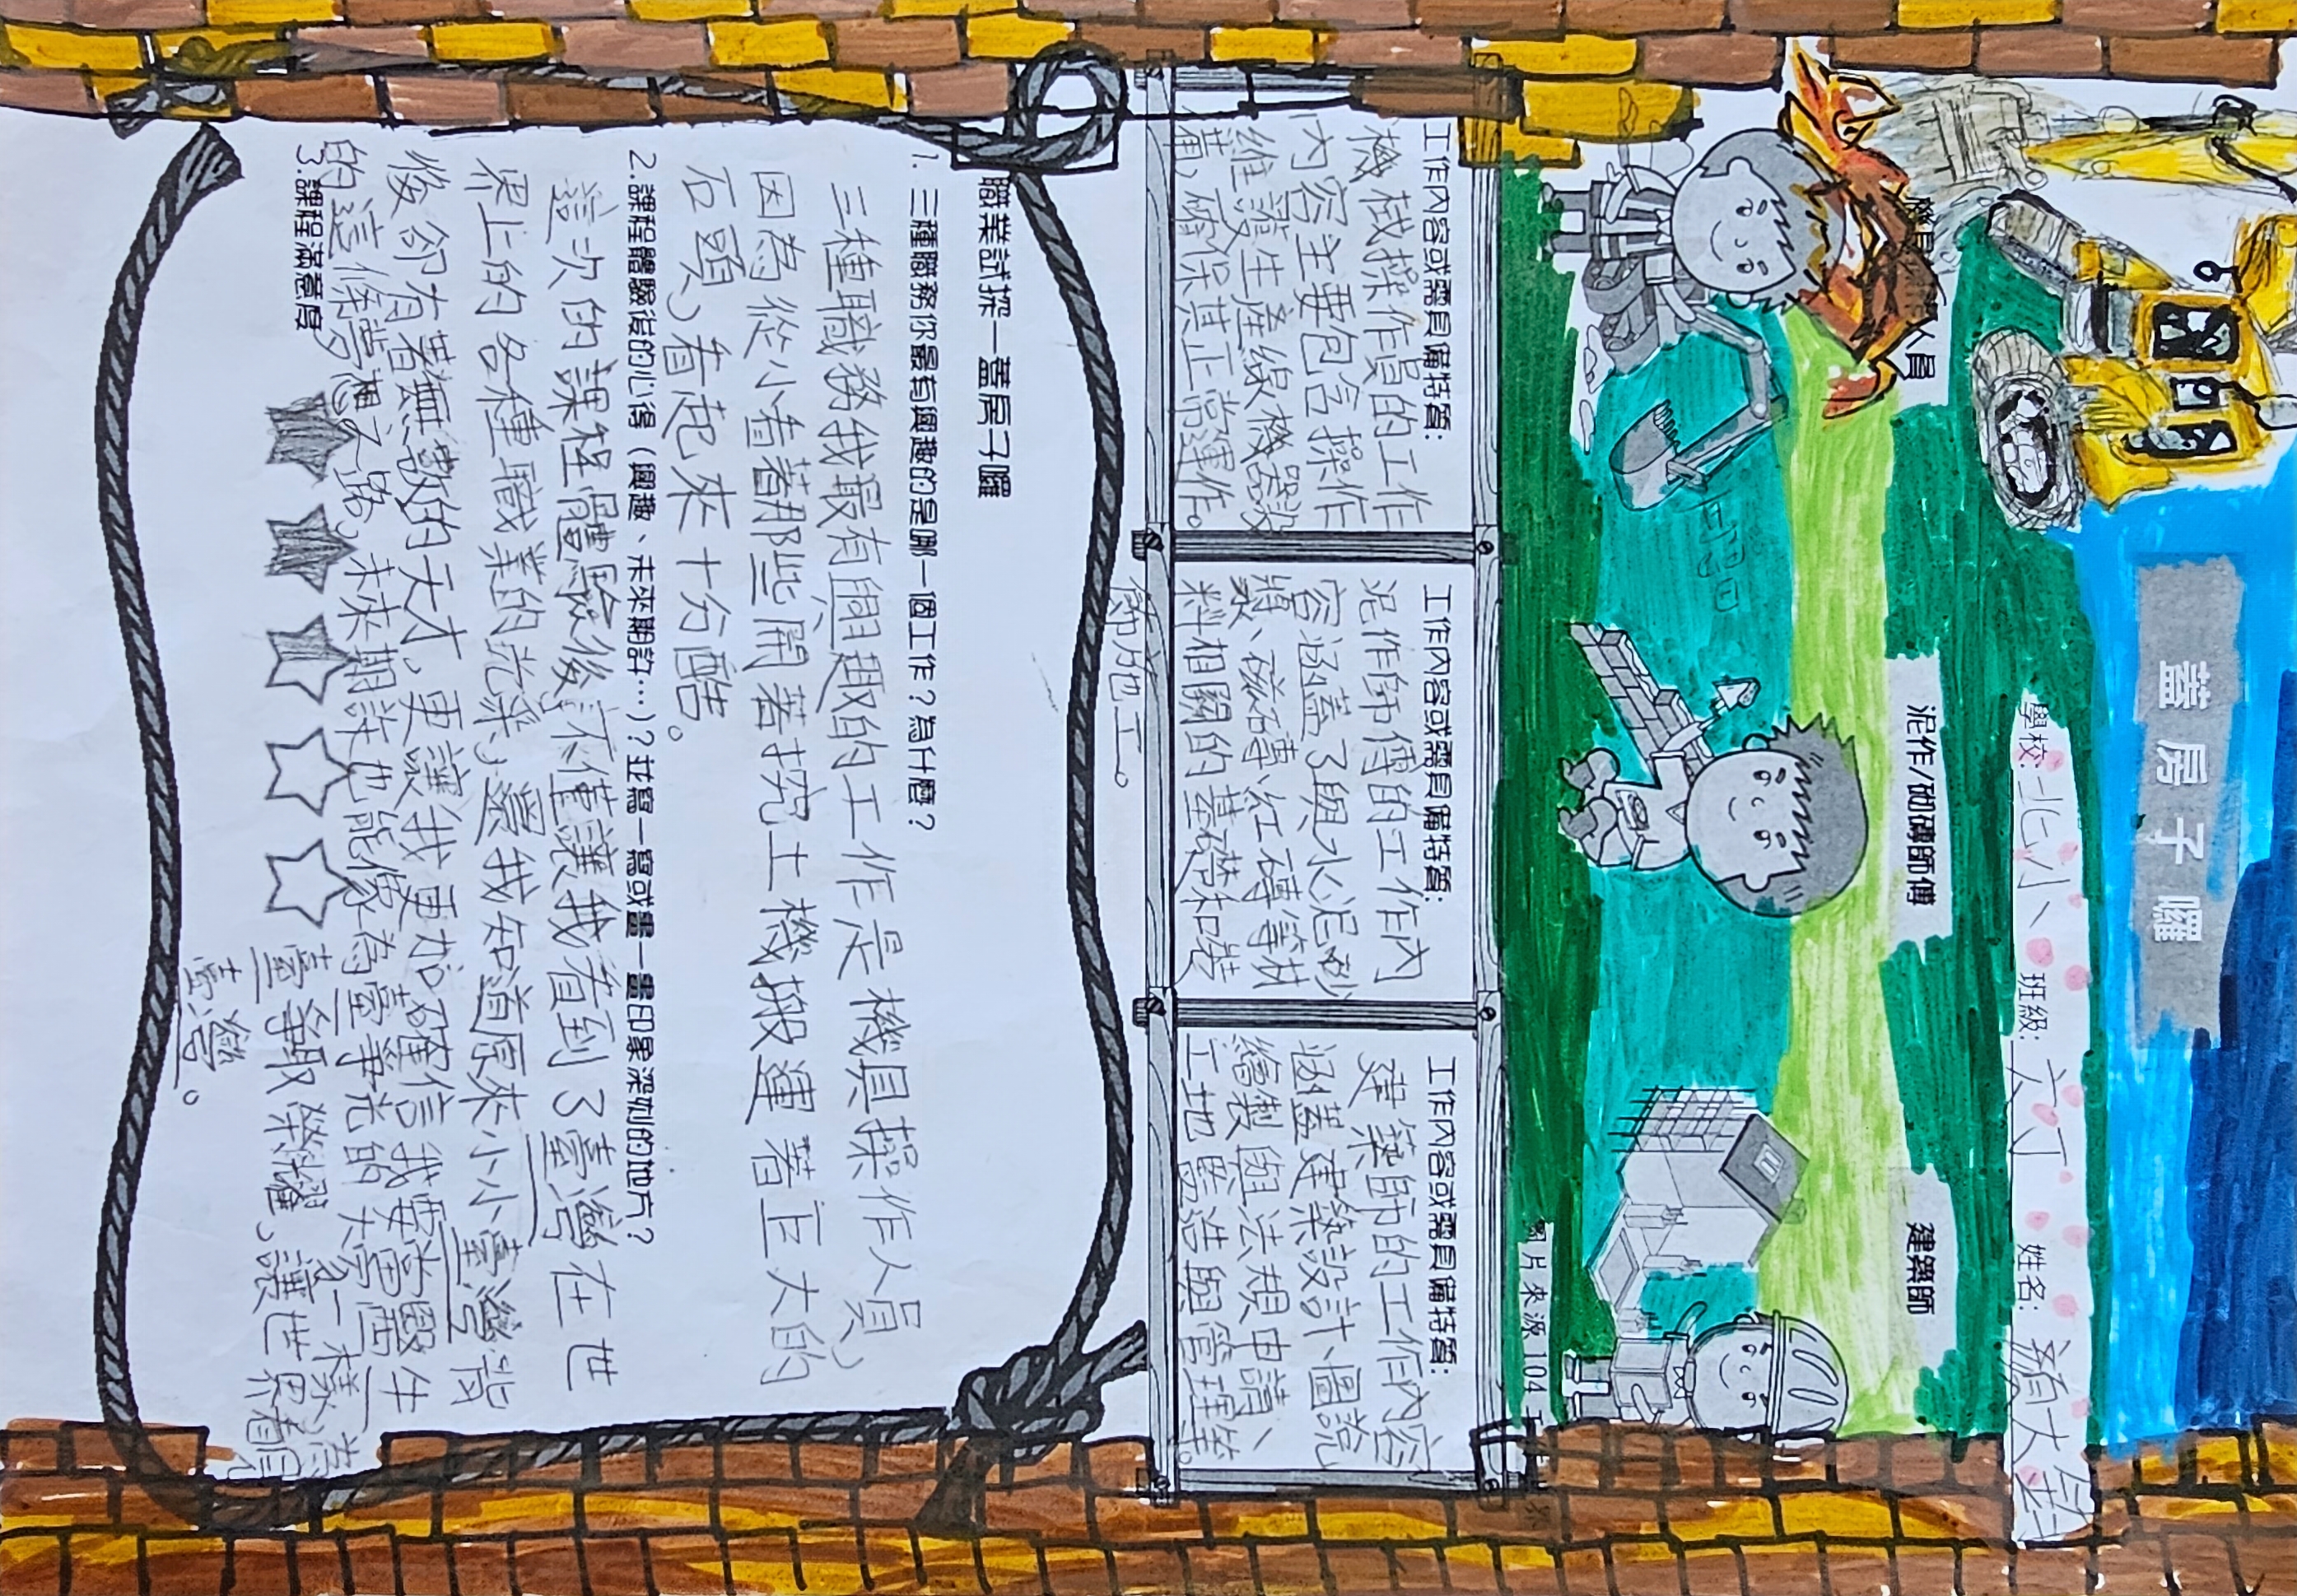 蓋房子囉
學校:北小、 班級:六丁 姓名:顏大鈞
人員
泥作/砌磚師傅
建築師
圖片來源104
工作內容或需具備特質:
機械操作員的工作
內容主要包含操作、
維護生產線機器設
備,確保其正常運作。
工作內容或需具備特質:
泥作師傅的工作內
容涵蓋了與水泥砂
漿、磁磚、紅磚等材
料相關的基礎和裝
飾施工。
工作內容或需具備特質:
建築師的工作內容
涵蓋建築設計、圖說
繪製與法規申請、
工地監造與管理等。
職業試探—蓋房子囉
1. 三種職務你最有興趣的是哪一個工作?為什麼?
三種職務我最有興趣的工作是機具操作人員,
因為從小看著那些開著挖土機搬運著巨大的
石頭,看起來十分酷。
2.課程體驗後的心得(興趣、未來期許…)?並寫一寫或畫一畫印象深刻的地方?
這次的課程體驗後,不僅讓我看到了臺灣在世
界上的各種職業的光彩,製我知道原來小小臺灣背
後卻有著無數的天才,更讓我更加確信我要當醫生
的這條夢想之路,未來期許也能像為臺爭光的大家一樣,為
臺爭取榮耀,讓世界看見
臺灣。
3.課程滿意度